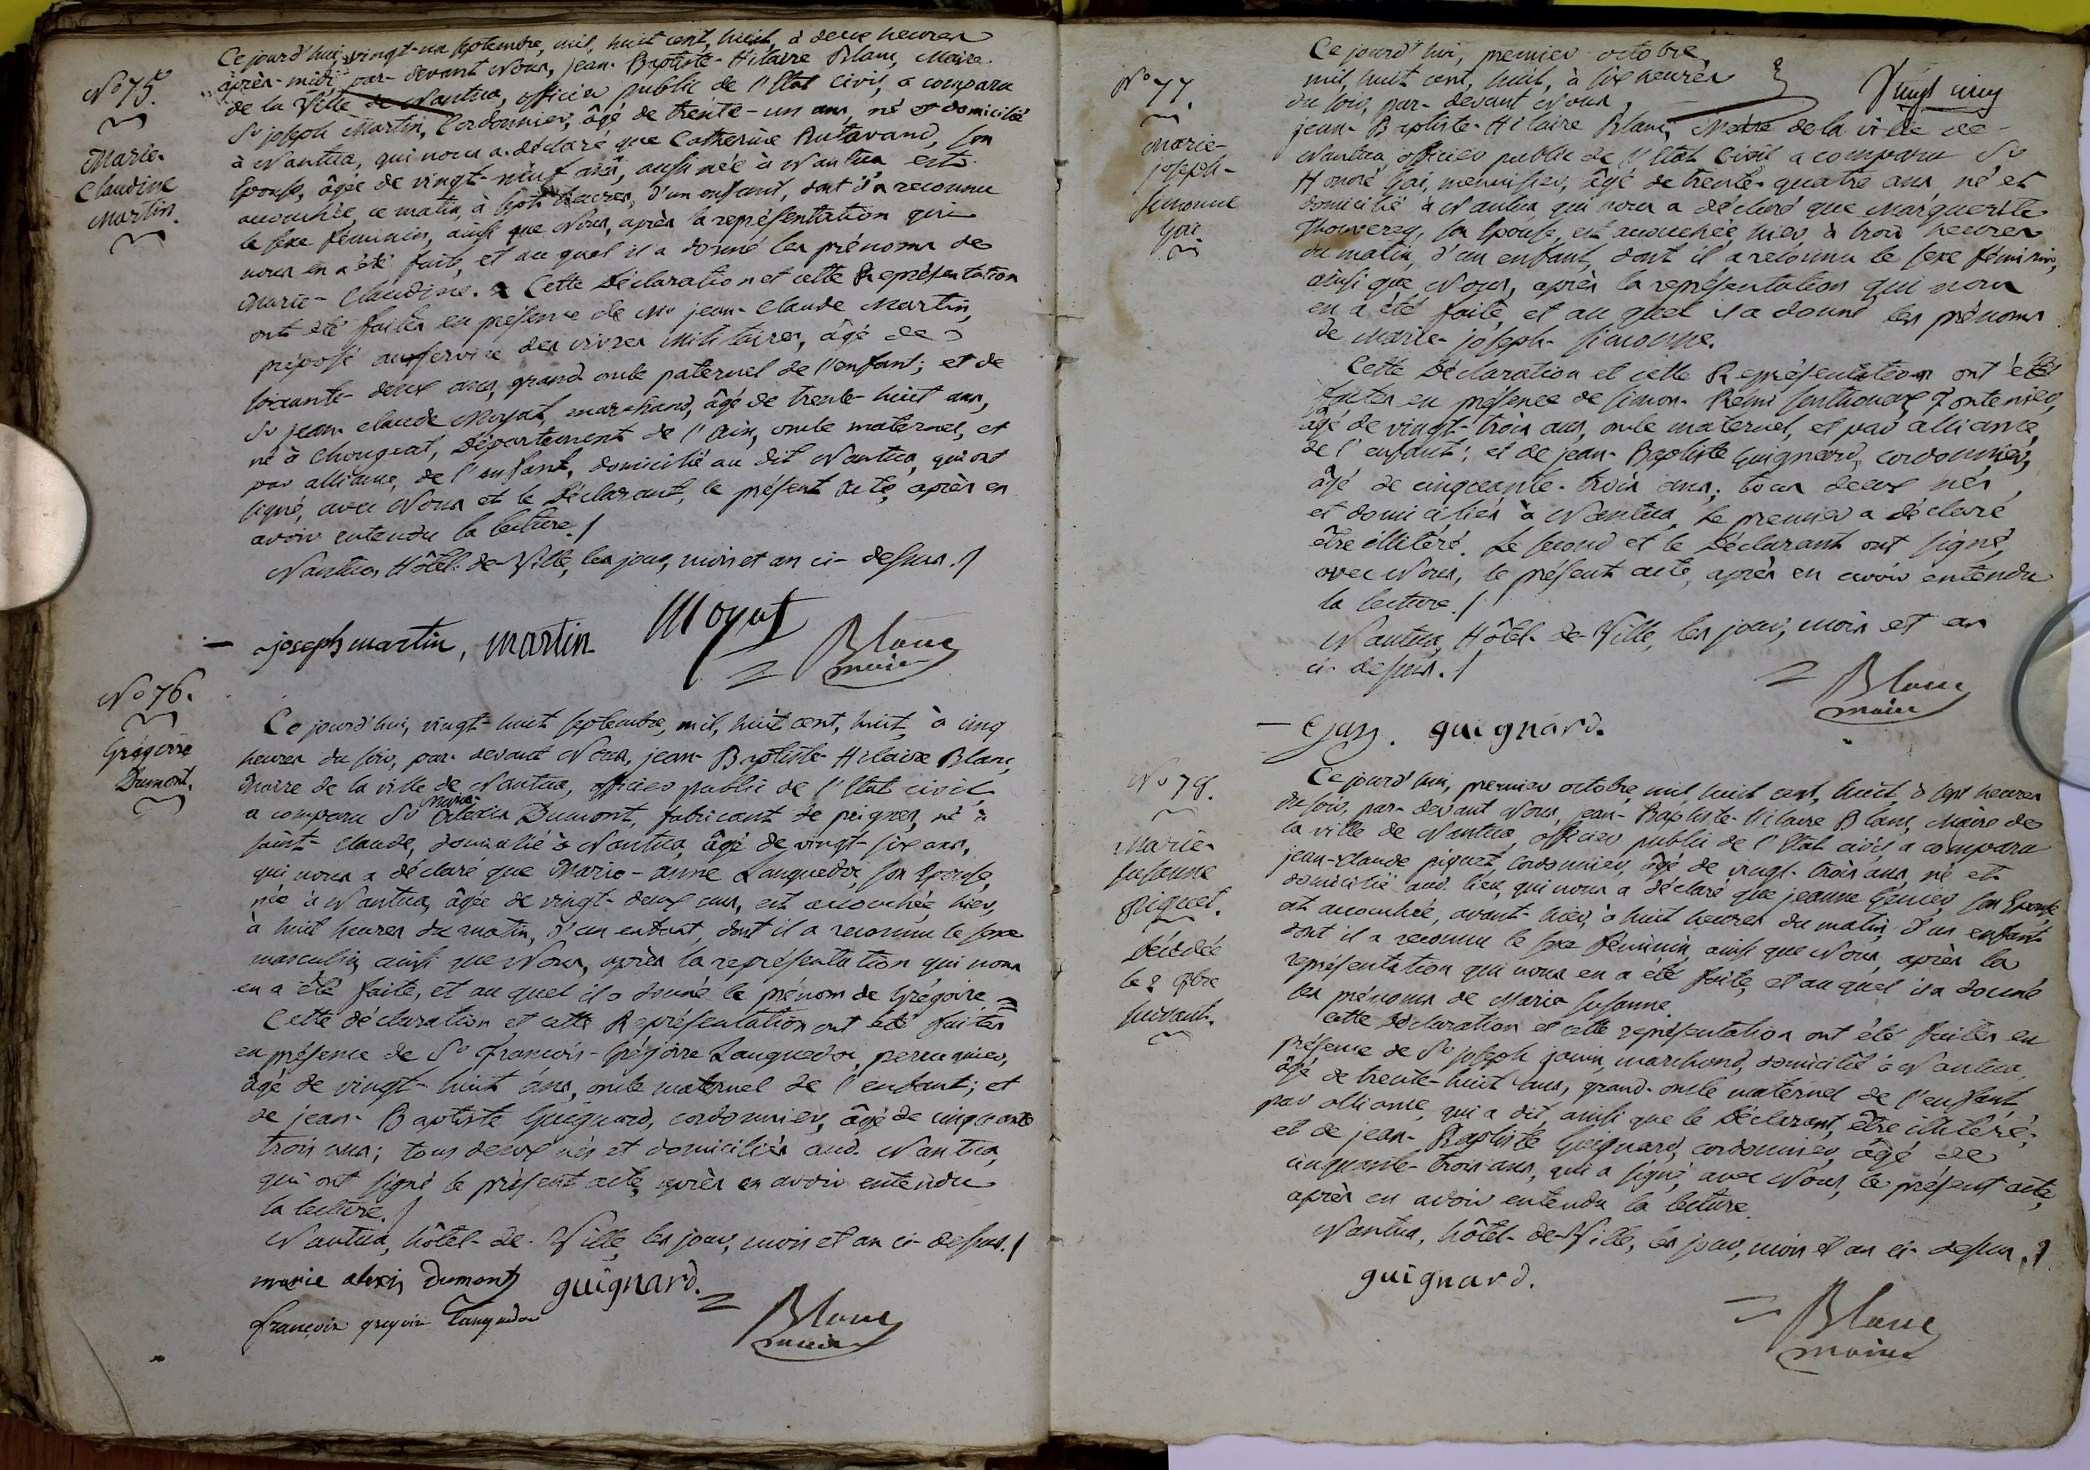 Ce jourd'hui, vingt-un septembre, mil, huit cent, huit, à deux heures
après-midi, par-devant Nous, jean-Baptiste-Hilaire Blanc, Maire
de la Ville de Nantua, officier public de l'Etat civil, a comparu
Sr joseph Martin, Cordonnier, âgé de trente-un ans, né et domicilié
à Nantua, qui nous a déclaré que Catherine Butavand, son
Epouse, âgée de vingt-neuf ans, aussi née à Nantua est
accouchée, ce matin, à sept heures, d'un enfant, dont il a reconnu
le sexe féminin, ainsi que Nous, après la représentation qui
nous en a été faite, et au quel il a donné les prénoms de
Marie-Claudine. Cette Déclaration et cette Représentation
ont été faites en présence de Mr jean-Claude Martin,
préposé au service des vivres militaires, âgé de
soixante-deux ans, grand oncle paternel de l'enfant; et de
Sr jean-claude Moyat, marchand, âgé de trente-huit ans,
né à Chougeat, Département de l'Ain, oncle maternel, et
par alliance, de l'enfant, domicilié au dit Nantua, qui ont
signé, avec Nous et le Déclarant, le présent acte, après en
avoir entendu la lecture./
Nantua, Hôtel-de-Ville, les jour, mois et an ci-dessus./
joseph martin, martin Moyat
Blanc
maire
No 75.
Marie-
Claudine
Martin.
No 76.
Grégoire
Dumont.
Ce jourd'hui, vingt-huit septembre, mil, huit cent, huit, à cinq
heures du soir, par-devant Nous, jean-Baptiste-Hilaire Blanc,
Maire de la ville de Nantua, officier public de l'Etat civil,
a comparu Sr Marie-Alexis Dumont, fabricant de peignes, né à
saint-Claude, domicilié à Nantua, âgé de vingt-six ans,
qui nous a déclaré que Marie-anne Languedoc, son Epouse,
née à Nantua, âgée de vingt-deux ans, est accouchée, hier,
à huit heures du matin, d'un enfant, dont il a reconnu le sexe
masculin, ainsi que Nous, après la représentation qui nous
en a été faite, et au quel il a donné le prénom de Grégoire =
Cette déclaration et cette Représentation ont été faites
en présence de Sr françois-Grégoire Languedoc, perruquier,
âgé de vingt-huit ans, oncle maternel de l'enfant; et
de jean-Baptiste Guignard, cordonnier, âgé de cinquante
trois ans; tous deux nés et domiciliés aud. Nantua,
qui ont signé le présent acte, après en avoir entendu
la lecture./
Nantua, hôtel-de-Ville, les jour, mois et an ci-dessus./
marie alexis Dumont guignard.
françois gregoire Languedoc
Blanc
maire
Vingt cinq
No 77.
Marie-
joseph-
simonne
Gai
Ce jourd'hui, premier octobre,
mil, huit cent, huit, à six heures
du soir, par-devant Nous,
jean-Baptiste-Hilaire Blanc, Maire de la ville de
Nantua, officier public de l'Etat civil a comparu Sr
Honoré Gai, menuisier, âgé de trente-quatre ans, né et
domicilié à Nantua, qui nous a déclaré que Marguerite
son Epouse, est accouchée hier à trois heures
du matin, d'un enfant, dont il a reconnu le sexe féminin,
ainsi que Nous, après la représentation qui nous
en a été faite, et au quel il a donné les prénoms
de Marie-joseph-simonne.
Cette Déclaration et cette Représentation ont été
faites en présence de simon-Remi
âgé de vingt-trois ans, oncle maternel, et par alliance,
de l'enfant; et de jean-Baptiste Guignard, cordonnier,
âgé de cinquante-trois ans; tous deux nés
et domiciliés à Nantua, Le premier a déclaré
être illitéré. Le second et le Déclarant ont signé,
avec Nous, le présent acte, après en avoir entendu
la lecture./
Nantua, Hôtel-de-Ville, les jour, mois et an
ci-dessus./
Blanc
maire
guignard.
No 78.
Marie-
susanne
Piquet.
Décédée
le 2 8bre
suivant.
Ce jourd'hui, premier octobre, mil, huit cent, huit, à sept heures
du soir, par-devant Nous, jean-Baptiste-Hilaire Blanc, Maire de
la ville de Nantua, officier public de l'Etat civil, a comparu
jean-Claude piquet, cordonnier, âgé de vingt-trois ans, né et
domicilié aud. lieu, qui nous a déclaré que jeanne son Epouse
est accouchée, avant-hier, à huit heures du matin, d'un enfant
dont il a reconnu le sexe féminin, ainsi que Nous, après la
représentation qui nous en a été faite, et au quel il a donné
les prénoms de Marie susanne.
Cette Déclaration et cette représentation ont été faites en
présence de Sr joseph janin, marchand, domicilié à Nantua,
âgé de trente-huit ans, grand-oncle maternel de l'enfant
par alliance, qui a dit, ainsi que le Déclarant, être illitéré;
et de jean-Baptiste Guignard, cordonnier, âgé de
cinquante-trois ans, qui a signé, avec Nous, le présent acte,
après en avoir entendu la lecture.
Nantua, hôtel-de-Ville, les jour, mois et an ci-dessus./
guignard.
Blanc
maire